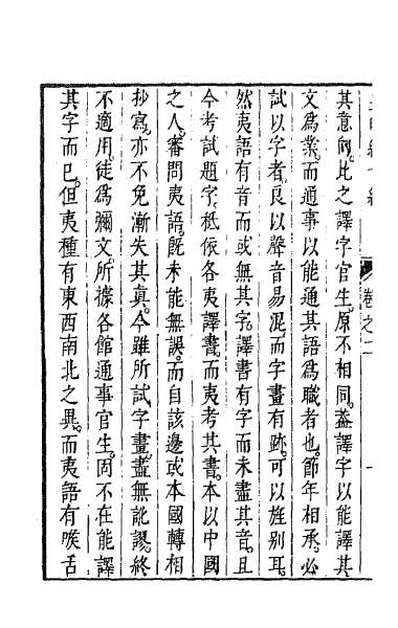 卷之二
其意向比之譯字官生。原不相同。蓋譯字以能譯其
文為業。而通事以能通其語為職者也。節年相承。必
試以字者。良以聲音易混。而字畫有跡。可以旌別耳。
然夷語有音而或無其字。譯書有字而未盡其音。且
今考試題字。秪依各夷譯書。而夷考其書。本以中國
之人。審問夷語。既未能無誤。而自該邊或本國轉相
抄寫。亦不免漸失其真。今雖所試字畫。盡無訛謬。終
不適用。徒為彌文。所據各館通事官生。固不在能譯
其字而已。但夷種有東西南北之異。而夷語有喉舌